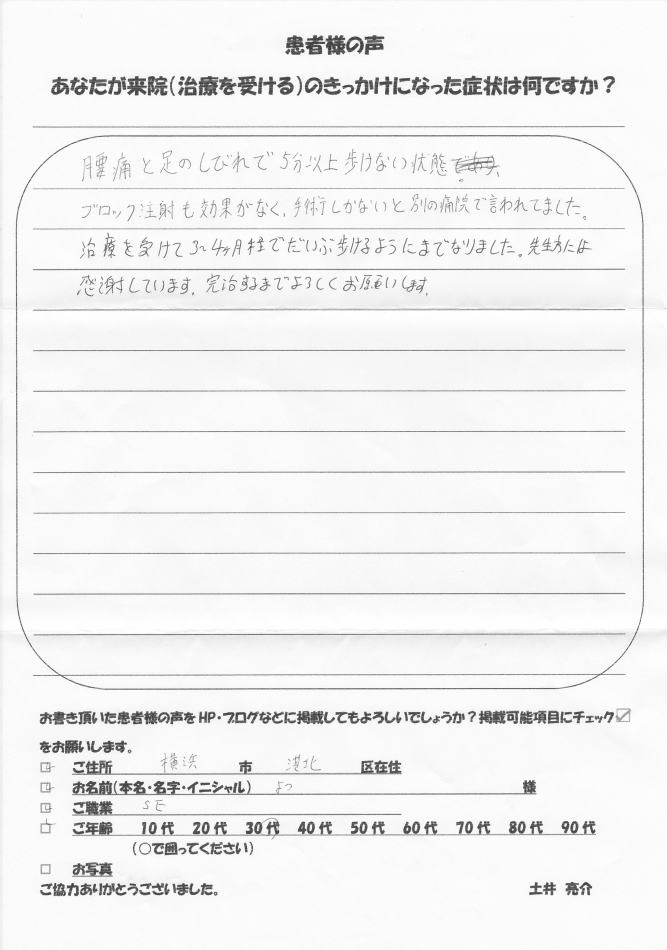 患者様の声
あなたが来院(治療を受ける)のきっかけになった症状は何ですか?
腰痛と足のしびれで5分以上歩けない状態
ブロック注射も効果がなく、手術しかないと別の病院で言われてました。
治療を受けて3~4ヶ月程でだいぶ歩けるようにまでなりました。先生方には
感謝しています。完治するまでよろしくお願いします。
お書き頂いた患者様の声をHP・ブログなどに掲載してもよろしいでしょうか?掲載可能項目にチェック☑
をお願いします。
ご住所 横浜 市 港北 区在住
お名前(本名・名字・イニシャル) よつ 様
ご職業 SE
ご年齢 10代 20代 30代 40代 50代 60代 70代 80代 90代
(○で囲ってください)
□ お写真
ご協力ありがとうございました。 土井 亮介